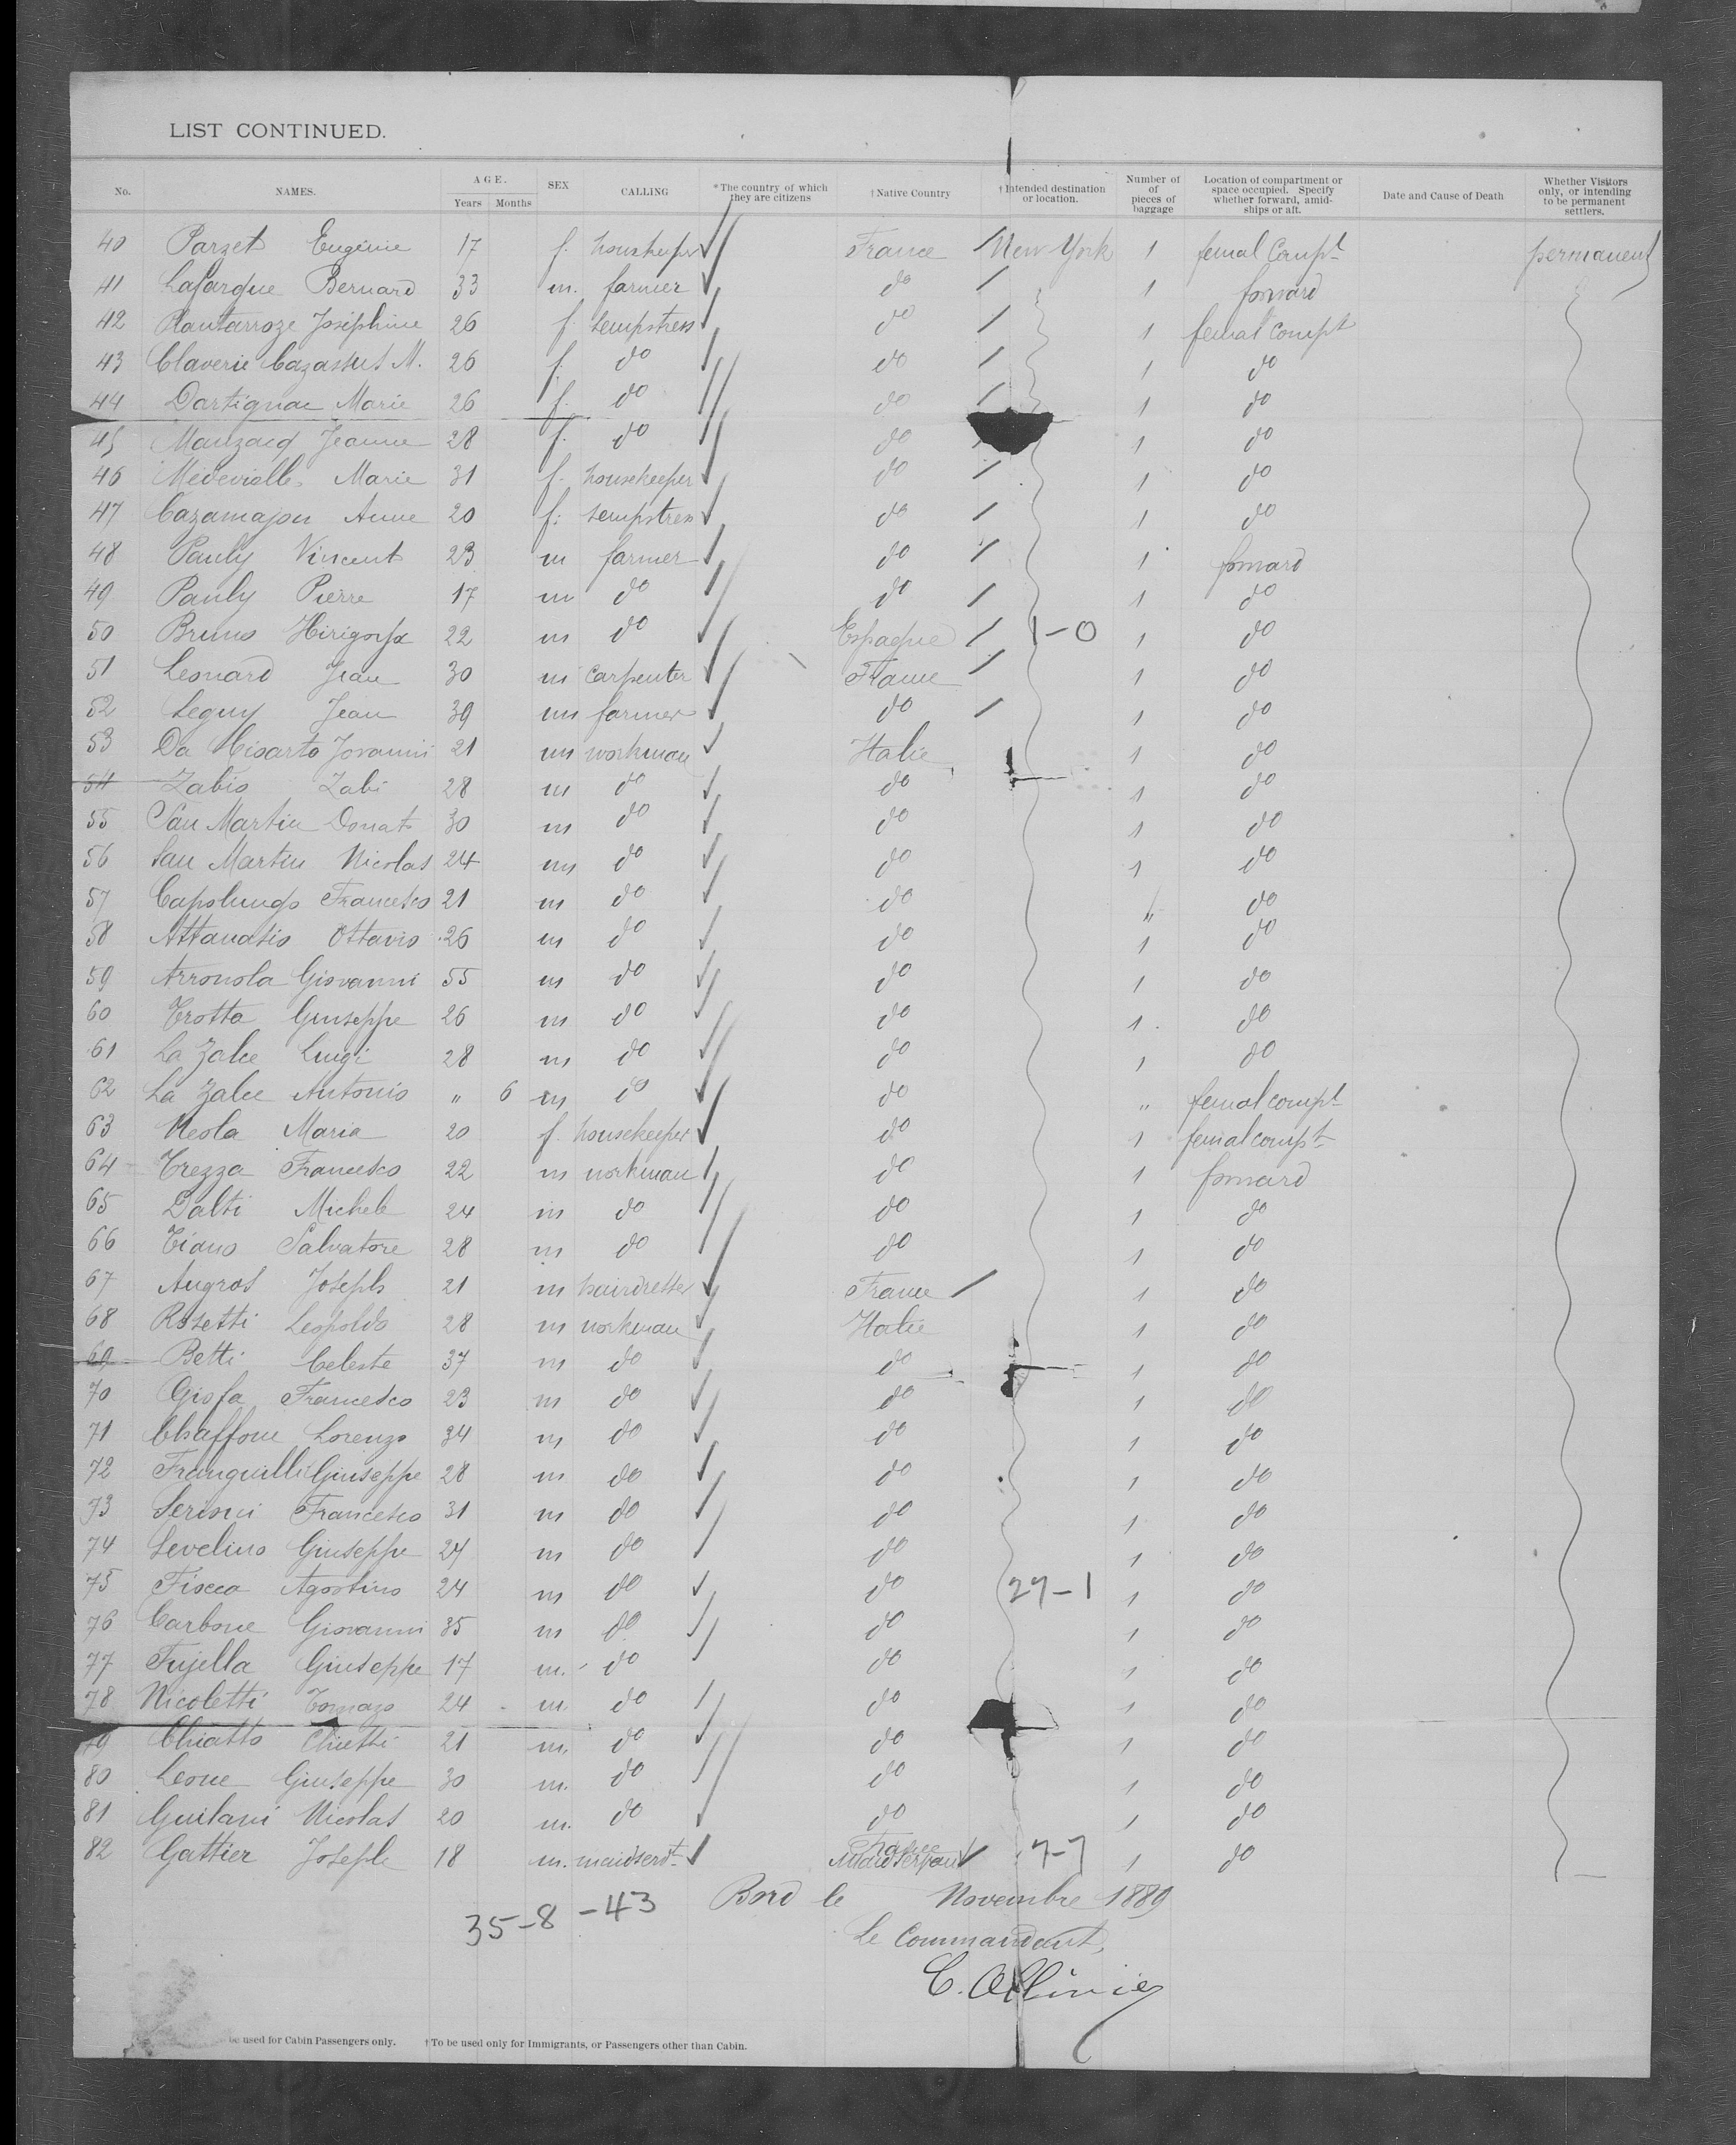 LIST CONTINUED.
No. NAMES. AGE. Years Months SEX CALLING *The country of which they are citizens †Native Country †Intended destination or location. Number of of pieces of baggage Location of compartment or space occupied. Specify whether forward, amid-ships or aft. Date and Cause of Death Whether Visitors only, or intending to be permanent settlers.
40 Parzet Eugénie 17 f. France New York 1 femal Compt permanent
41 Lafargue Bernard 33 m. farmer do 1 forward
42 Plantarroze Joséphine 26 f. sempstress do 1 femal compt
43 Claverie Cazassus M. 26 f. do do 1 do
44 Dartignac Marie 26 f. do do 1 do
45 Jeanne 28 f. do do 1 do
46 Marie 31 f. housekeeper do 1 do
47 Cazamajou Anne 20 f. sempstress do 1 do
48 Pauly Vincent 23 m farmer do 1 forward
49 Pauly Pierre 17 m do do 1 do
50 Bruno 22 m do Espagne 1-0 1 do
51 Leonard Jean 30 m carpenter France 1 do
52 Seguy Jean 39 m farmer do 1 do
53 Da 21 m workman Italie 1 do
54 Zabio Zabi 28 m do do 1 do
55 San Martin Donato 30 m do do 1 do
56 San Martin Nicolas 24 m do do 1 do
57 Capolungo Francesco 21 m do do " do
58 Attanasio Ottavio 26 m do do 1 do
59 Arronola Giovanni 55 m do do 1 do
60 Trotta Giuseppe 26 m do do 1 do
61 La Zalce Luigi 28 m do do 1 do
62 La Zalce Antonio " 6 m do do " femal compt
63 Maria 20 f. housekeeper do 1 femal compt
64 Trezza Francesco 22 m workman do 1 forward
65 Michele 24 m do do 1 do
66 Tiano Salvatore 28 m do do 1 do
67 Augros Joseph 21 m hairdresser France 1 do
68 Rosetti Leopoldo 28 m workman Italie 1 do
69 Betti Celeste 37 m do do 1 do
70 Giofa Francesco 23 m do do 1 do
71 Chaffone Lorenzo 34 m do do 1 do
72 Tranquilli Giuseppe 28 m do do 1 do
73 Francesco 31 m do do 1 do
74 Sevelino Giuseppe 24 m do do 1 do
75 Agostino 24 m do do 29-1 1 do
76 Carbone Giovanni 35 m do do 1 do
77 Giuseppe 17 m. do do 1 do
78 Nicoletti Tomazo 24 m. do do 1 do
79 Chiatto Chietti 21 m. do do 1 do
80 Leone Giuseppe 30 m. do do 1 do
81 Guilani Nicolas 20 m. do do 1 do
82 Gattier Joseph 18 m. maidservt France 7-7 1 do
35-8-43 Bord le Novembre 1889
Le Commandant,
be used for Cabin Passengers only. †To be used only for Immigrants, or Passengers other than Cabin.